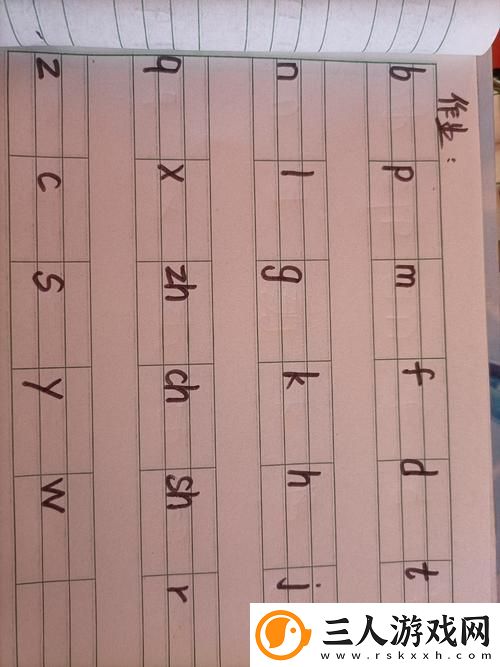 作业：
b p m f d t
n l g k h j
q x zh ch sh r
z c s y w
三人游戏网
www.rskxxh.com